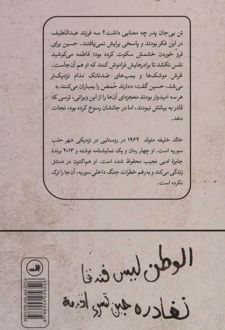 تن بی‌جان پدر چه معنایی داشت؟ سه فرزند عبداللطیف
در این فکر بودند و پاسخی برایش نمی‌یافتند. حسین برای
فرو خوردن خشمش سکوت کرده بود؛ فاطمه می‌کوشید
نفس نکشد تا برادرهایش فراموش کنند که او هم آن‌جاست.
غرش موشک‌ها و بمب‌های ضدتانک مدام نزدیک‌تر
می‌شد، حسین گفت: «دارند حُمص را بمباران می‌کنند.»
هر سه امیدوار بودند معجزه‌ای آن‌ها را از این ویرانی، ترسی که
قادر به بیانش نبودند، اما در جانشان رسوخ کرده بود، نجات
دهد.
خالد خلیفه متولد ۱۹۶۴ در روستایی در نزدیکی شهر حلبِ
سوریه است. او چهار رمان و یک نمایشنامه نوشته و ۲۰۱۳ برندهٔ
جایزهٔ ادبی نجیب محفوظ شده است. او هم‌اکنون در دمشق
زندگی می‌کند و به‌رغم خطرات جنگ داخلی سوریه، آن‌جا را ترک
نکرده است.
الوطن ليس فندقا
نغادره حين تسوء